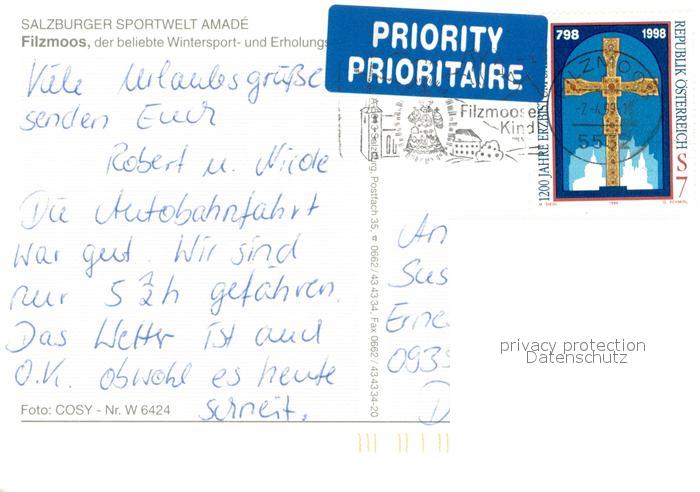 SALZBURGER SPORTWELT AMADÉ
Filzmoos, der beliebte Wintersport- und Erholungs
Viele Urlaubsgrüße
senden Euch
Robert u. Nicole
Die Autobahnfahrt
war gut. Wir sind
nur 5 1/2 h gefahren.
Das Wetter ist auch
O.K. obwohl es heute
schneit.
Foto: COSY - Nr. W 6424
Salzburg, Postfach 35, ☎ 0662/43 43 34, Fax 0662/43 43 34-20
PRIORITY
PRIORITAIRE
Filzmoos
Kind
FILZMOOS
5532
798 1998
1200 JAHRE ERZBISTUM
REPUBLIK ÖSTERREICH
S 7
1998
An
Sus
Erne
0935
D
privacy protection
Datenschutz